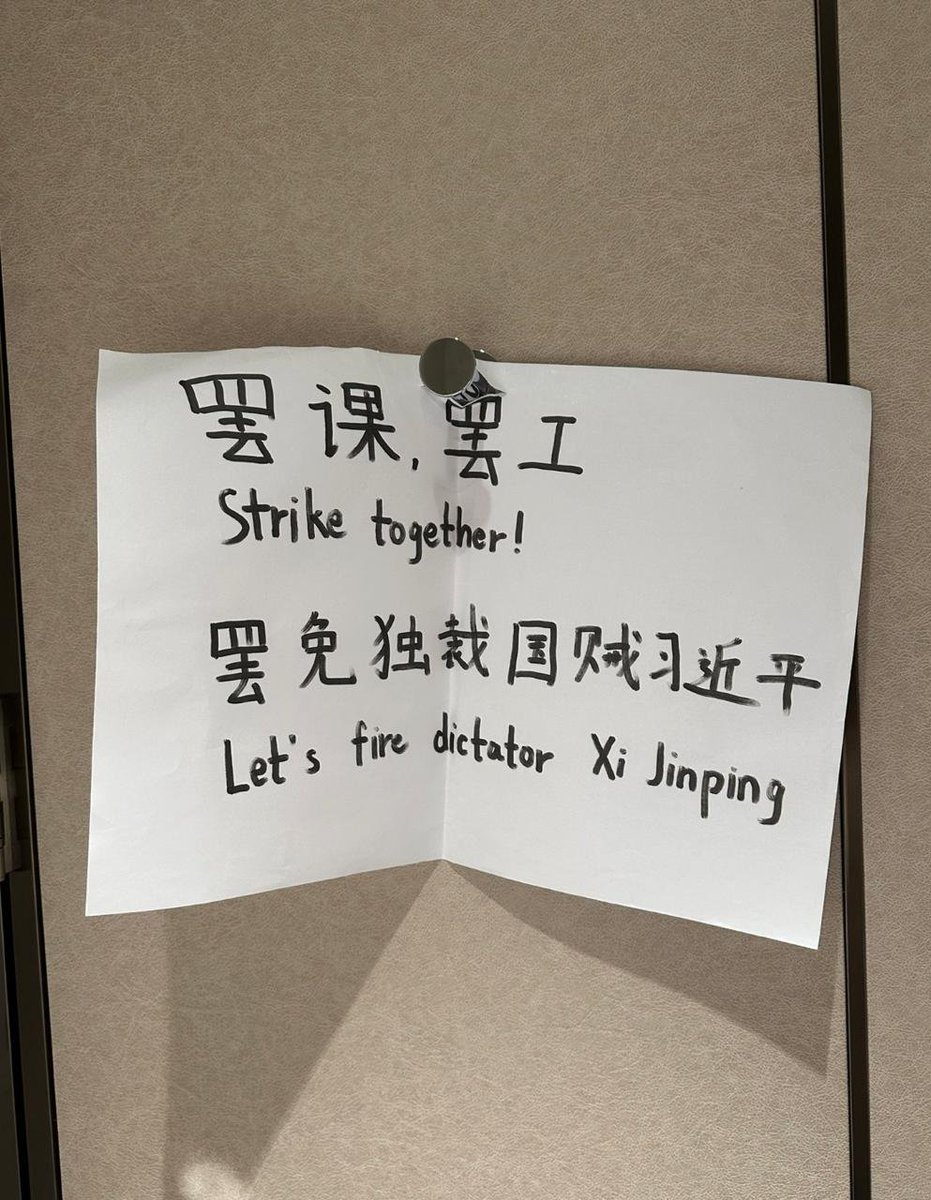 罢课,罢工
Strike together!
罢免独裁国贼习近平
Let's fire dictator Xi Jinping